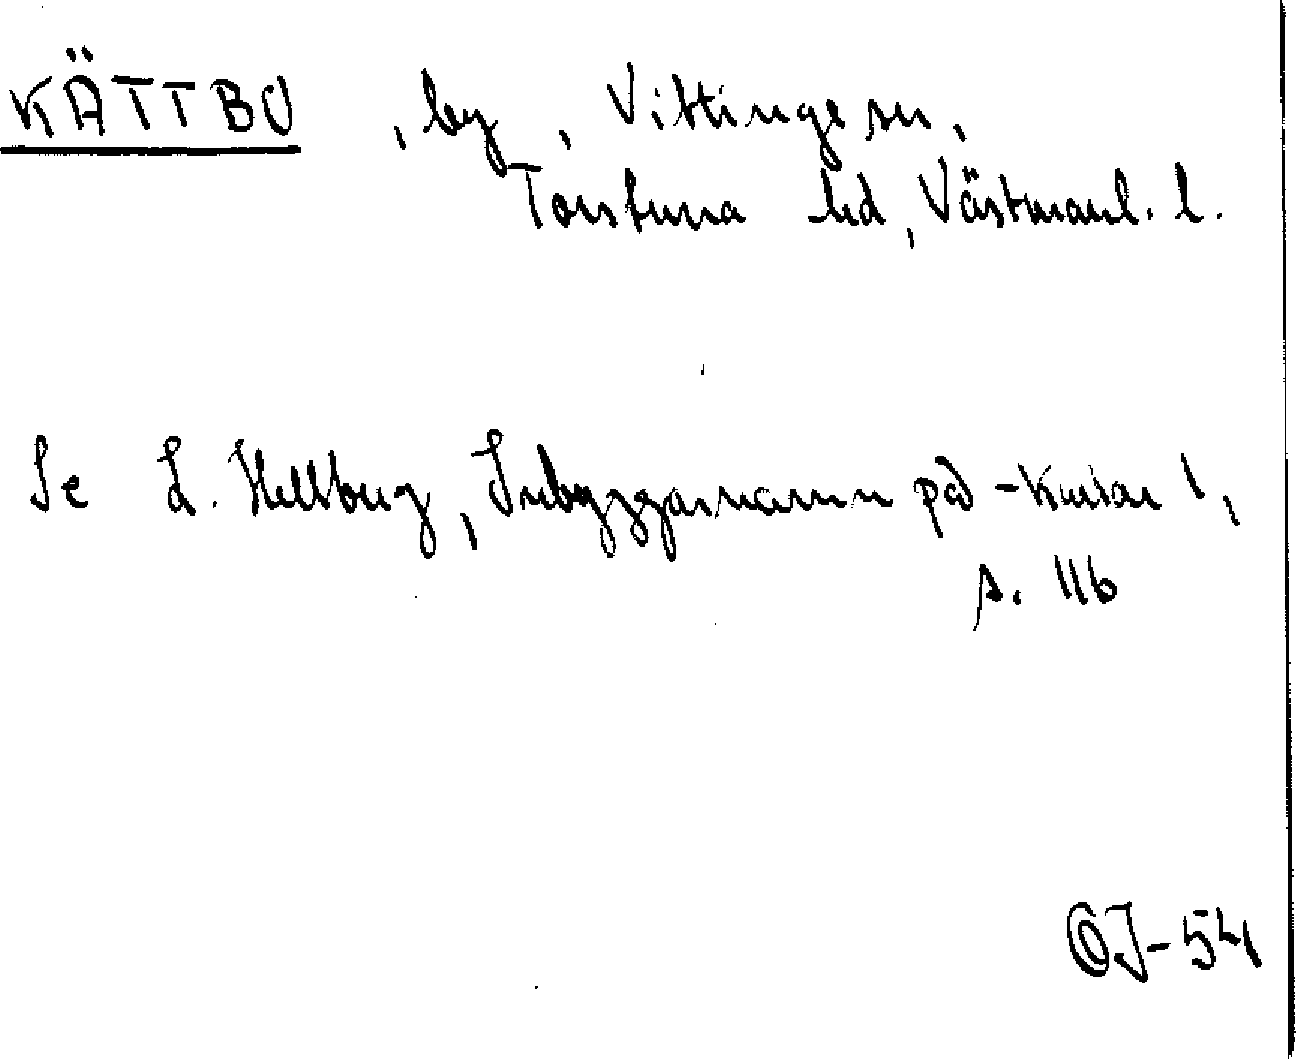 KÄTTBO , by , Vittinge sn,
Torstuna hd, Västmanl. l.
Se L. Hellberg, Inbyggarnamn på -karlar 1,
s. 116
OJ-54